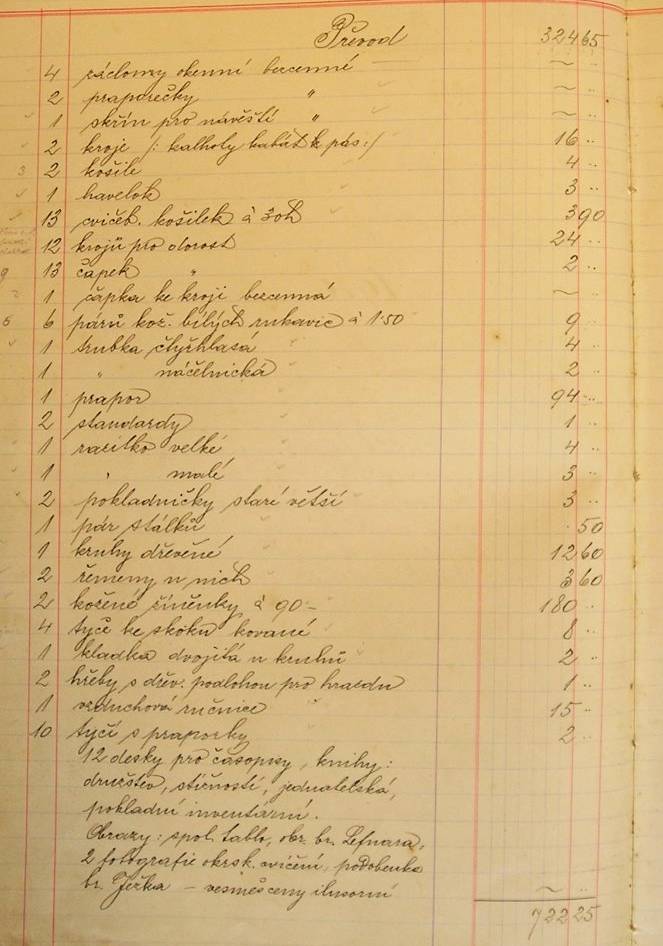 Převod 324 65
4 záclonny okenní bezcenné — ~ ..
2 praporečky " ~ ..
1 skřín pro návěští " ~ ..
2 kroje /: kalhoty kabát k pás :/ 16 ..
2 košile 4 ..
1 havelok 3 ..
13 cvičeb. košilek à 30 h 3 90
12 krojů pro dorost 24 ..
13 čapek " 2 ..
1 čapka ke kroji bezcenná ~
6 párů kož. bílých rukavic à 1·50 9 ..
1 trubka čtyřhlasá 4 ..
1 " náčelnická 2 ..
1 prapor 94 ..
2 standardy 1 ..
1 razítko velké 4 ..
1 " malé 3 ..
2 pokladničky staré větší 3 ..
1 pár stálků 50
1 kruhy dřevěné 12 60
2 řemeny u nich 3 60
2 kožené žíněnky à 90 — 180 ..
4 tyče ke skoku kované 8 ..
1 kladka dvojitá u kruhů 2 ..
2 hřeby s dřev. podlohou pro hrazdu 1 ..
1 vzduchová ručnice 15 ..
10 tyčí s praporky 2 ..
12 desky pro časopisy, knihy:
družstev, stížností, jednatelská,
pokladní inventární.
Obrazy: spol. tablo, obr. br. Lefnara,
2 fotografie okrsk. cvičení, podobenka
br. Ježka — vesměs ceny ilusorní ~ ..
722 25